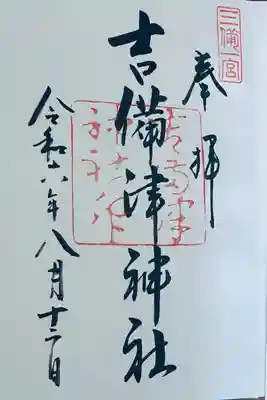 三備一宮
奉拝
吉備津神社
令和六年八月十二日